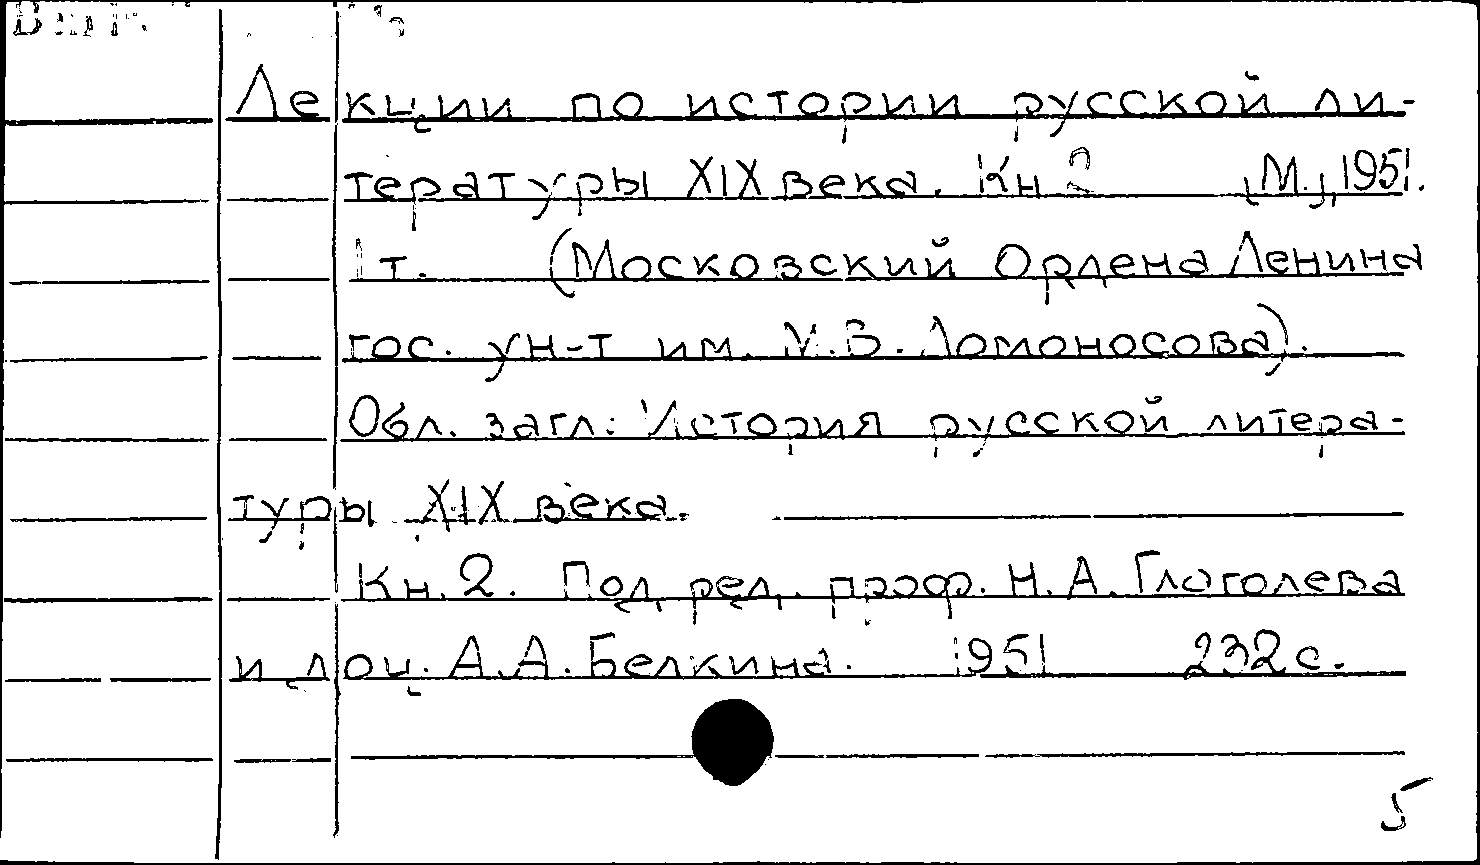 Лекции по истории русской ли-
тературы XIX века. Кн 2 [М.], 1951.
1 т. (Московский Ордена Ленина
гос. ун-т им. М.В. Ломоносова).
Обл. загл: История русской литера-
туры XIX века.
Кн. 2. Под ред. проф. Н.А. Глаголева
и доц. А.А. Белкина. 1951 232 с.
5